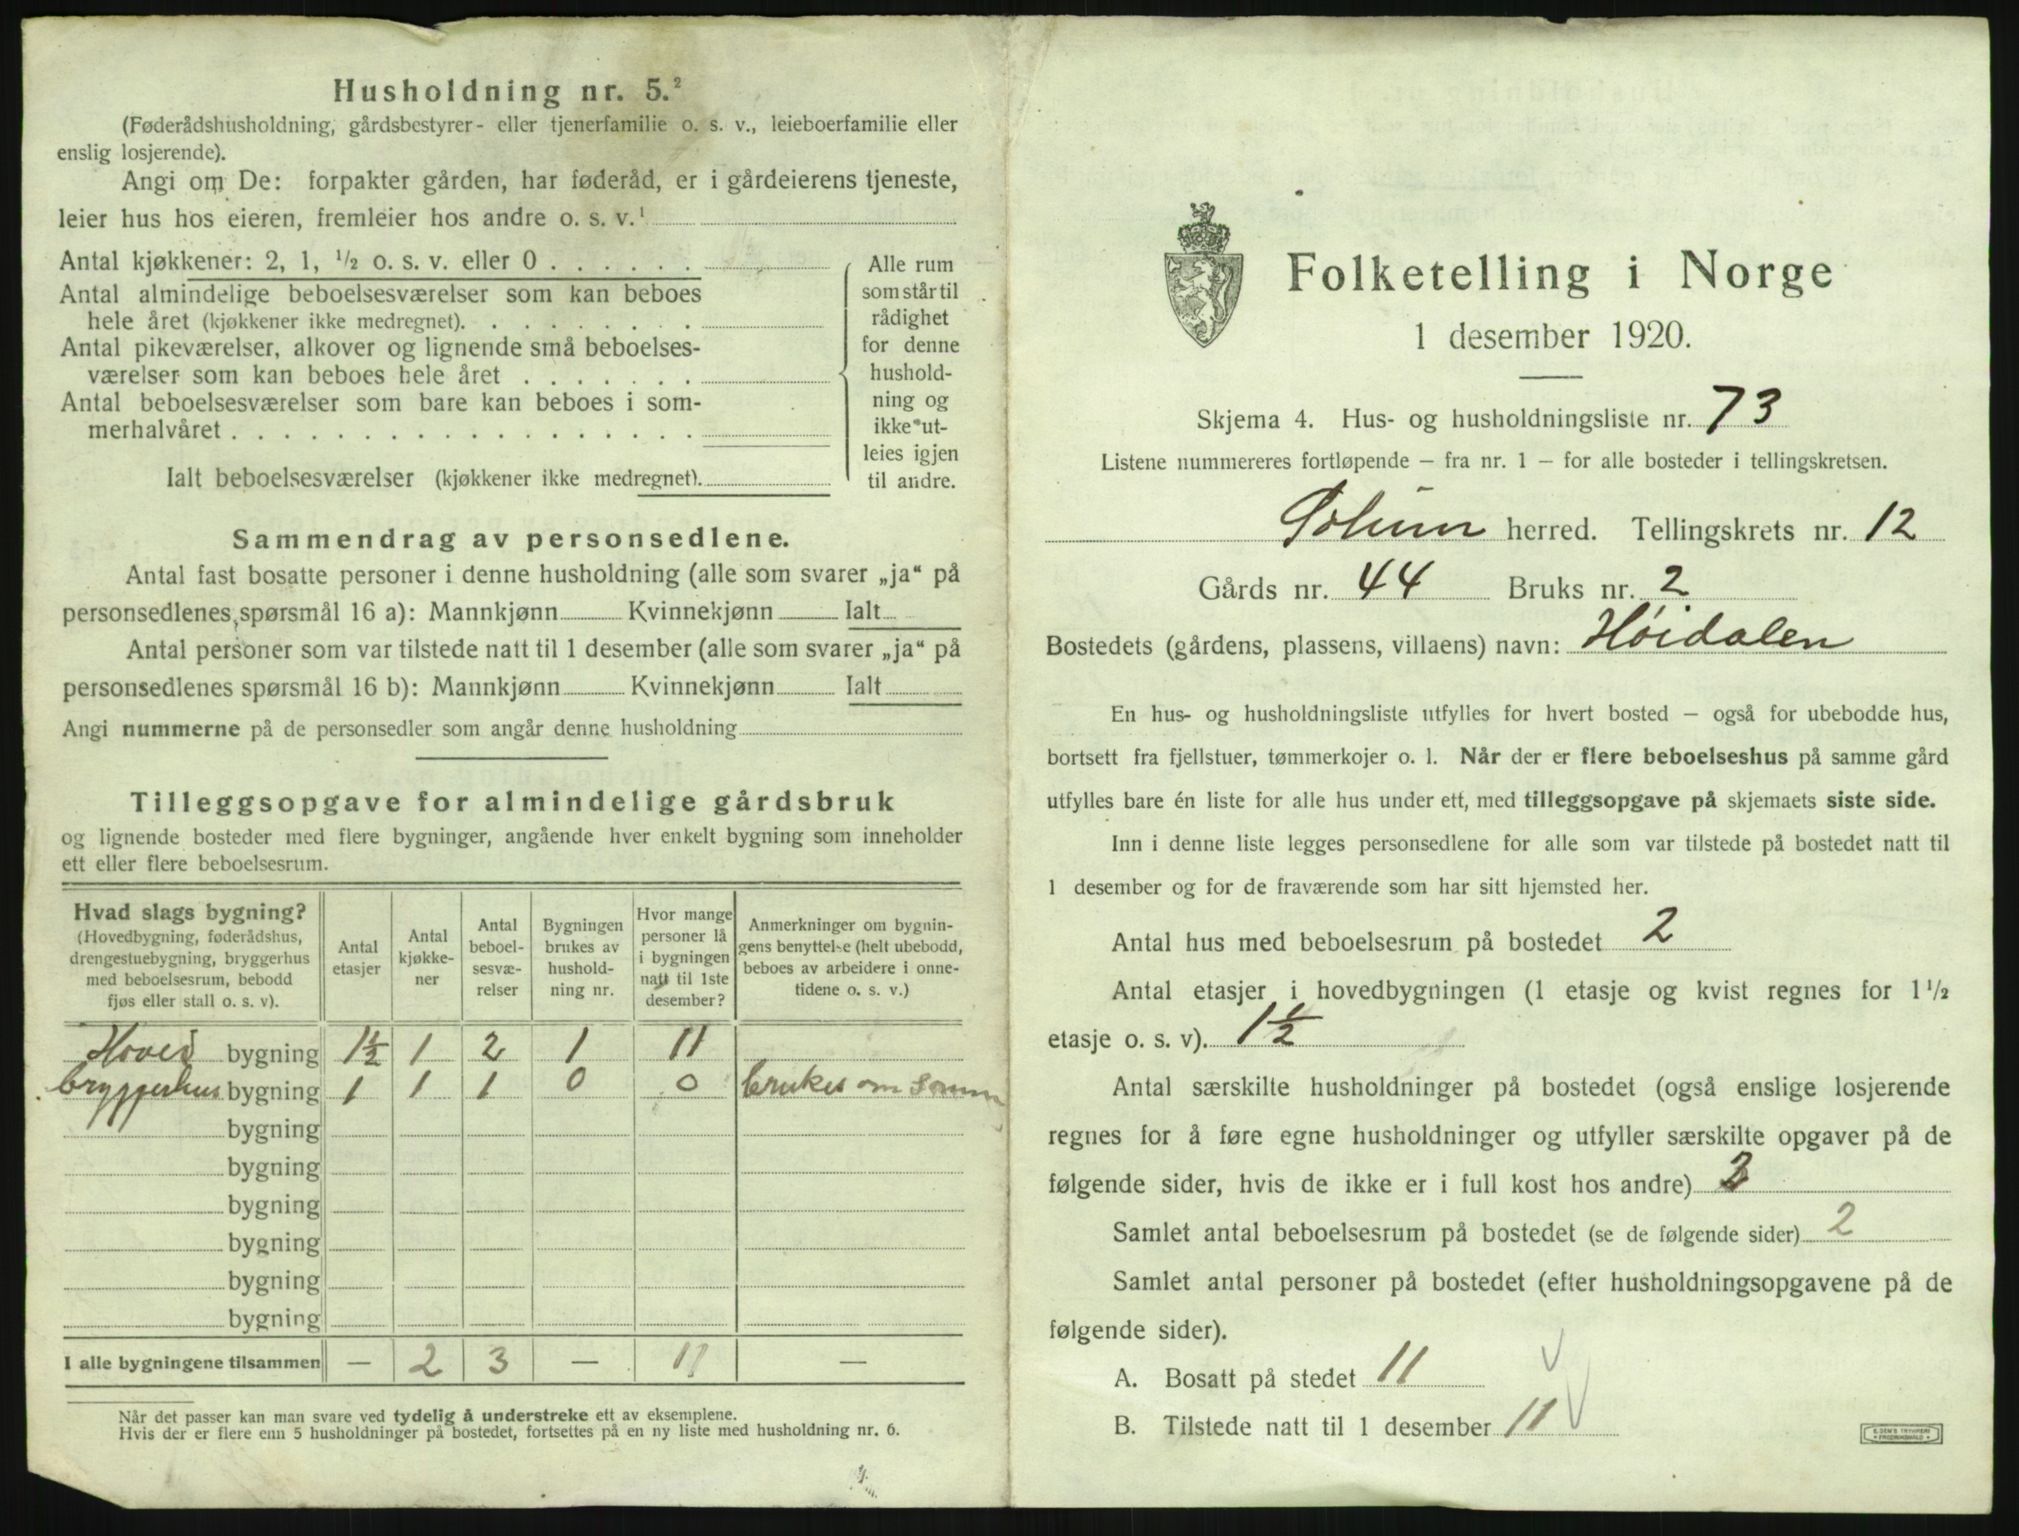 Husholdning nr. 5.²
(Føderådshusholdning, gårdsbestyrer- eller tjenerfamilie o. s. v., leieboerfamilie eller
enslig losjerende).
Angi om De: forpakter gården, har føderåd, er i gårdeierens tjeneste,
leier hus hos eieren, fremleier hos andre o. s. v.¹
Antal kjøkkener: 2, 1, ½ o. s. v. eller 0 . . . . . .
Antal almindelige beboelsesværelser som kan beboes
hele året (kjøkkener ikke medregnet). . . . . . . . .
Antal pikeværelser, alkover og lignende små beboelses-
værelser som kan beboes hele året . . . . . . .
Antal beboelsesværelser som bare kan beboes i som-
merhalvåret . . . . . . . . . . . . . . . . . .
Ialt beboelsesværelser (kjøkkener ikke medregnet).
Alle rum
som står til
rådighet
for denne
hushold-
ning og
ikke ut-
leies igjen
til andre.
Sammendrag av personsedlene.
Antal fast bosatte personer i denne husholdning (alle som svarer „ja“ på
personsedlenes spørsmål 16 a): Mannkjønn Kvinnekjønn Ialt
Antal personer som var tilstede natt til 1 desember (alle som svarer „ja“ på
personsedlenes spørsmål 16 b): Mannkjønn Kvinnekjønn Ialt
Angi nummerne på de personsedler som angår denne husholdning
Tilleggsopgave for almindelige gårdsbruk
og lignende bosteder med flere bygninger, angående hver enkelt bygning som inneholder
ett eller flere beboelsesrum.
Hvad slags bygning?
(Hovedbygning, føderådshus,
drengestuebygning, bryggerhus
med beboelsesrum, bebodd
fjøs eller stall o. s. v).
Antal
etasjer
Antal
kjøkke-
ner
Antal
beboel-
sesvæ-
relser
Bygningen
brukes av
hushold-
ning nr.
Hvor mange
personer lå
i bygningen
natt til 1ste
desember?
Anmerkninger om bygnin-
gens benyttelse (helt ubebodd,
beboes av arbeidere i onne-
tidene o. s. v.)
Hoved bygning 1½ 1 2 1 11
bryggerhus bygning 1 1 1 0 0 brukes om Somm
bygning
bygning
bygning
bygning
bygning
bygning
I alle bygningene tilsammen — 2 3 — 11 —
Når det passer kan man svare ved tydelig å understreke ett av eksemplene.
Hvis der er flere enn 5 husholdninger på bostedet, fortsettes på en ny liste med husholdning nr. 6.
Folketelling i Norge
1 desember 1920.
Skjema 4. Hus- og husholdningsliste nr. 73
Listene nummereres fortløpende — fra nr. 1 — for alle bosteder i tellingskretsen.
Solum herred. Tellingskrets nr. 12
Gårds nr. 44 Bruks nr. 2
Bostedets (gårdens, plassens, villaens) navn: Høidalen
En hus- og husholdningsliste utfylles for hvert bosted — også for ubebodde hus,
bortsett fra fjellstuer, tømmerkojer o. l. Når der er flere beboelseshus på samme gård
utfylles bare én liste for alle hus under ett, med tilleggsopgave på skjemaets siste side.
Inn i denne liste legges personsedlene for alle som var tilstede på bostedet natt til
1 desember og for de fraværende som har sitt hjemsted her.
Antal hus med beboelsesrum på bostedet 2
Antal etasjer i hovedbygningen (1 etasje og kvist regnes for 1½
etasje o. s. v). 1½
Antal særskilte husholdninger på bostedet (også enslige losjerende
regnes for å føre egne husholdninger og utfyller særskilte opgaver på de
følgende sider, hvis de ikke er i full kost hos andre)
Samlet antal beboelsesrum på bostedet (se de følgende sider) 2
Samlet antal personer på bostedet (efter husholdningsopgavene på de
følgende sider).
A. Bosatt på stedet 11
B. Tilstede natt til 1 desember 11